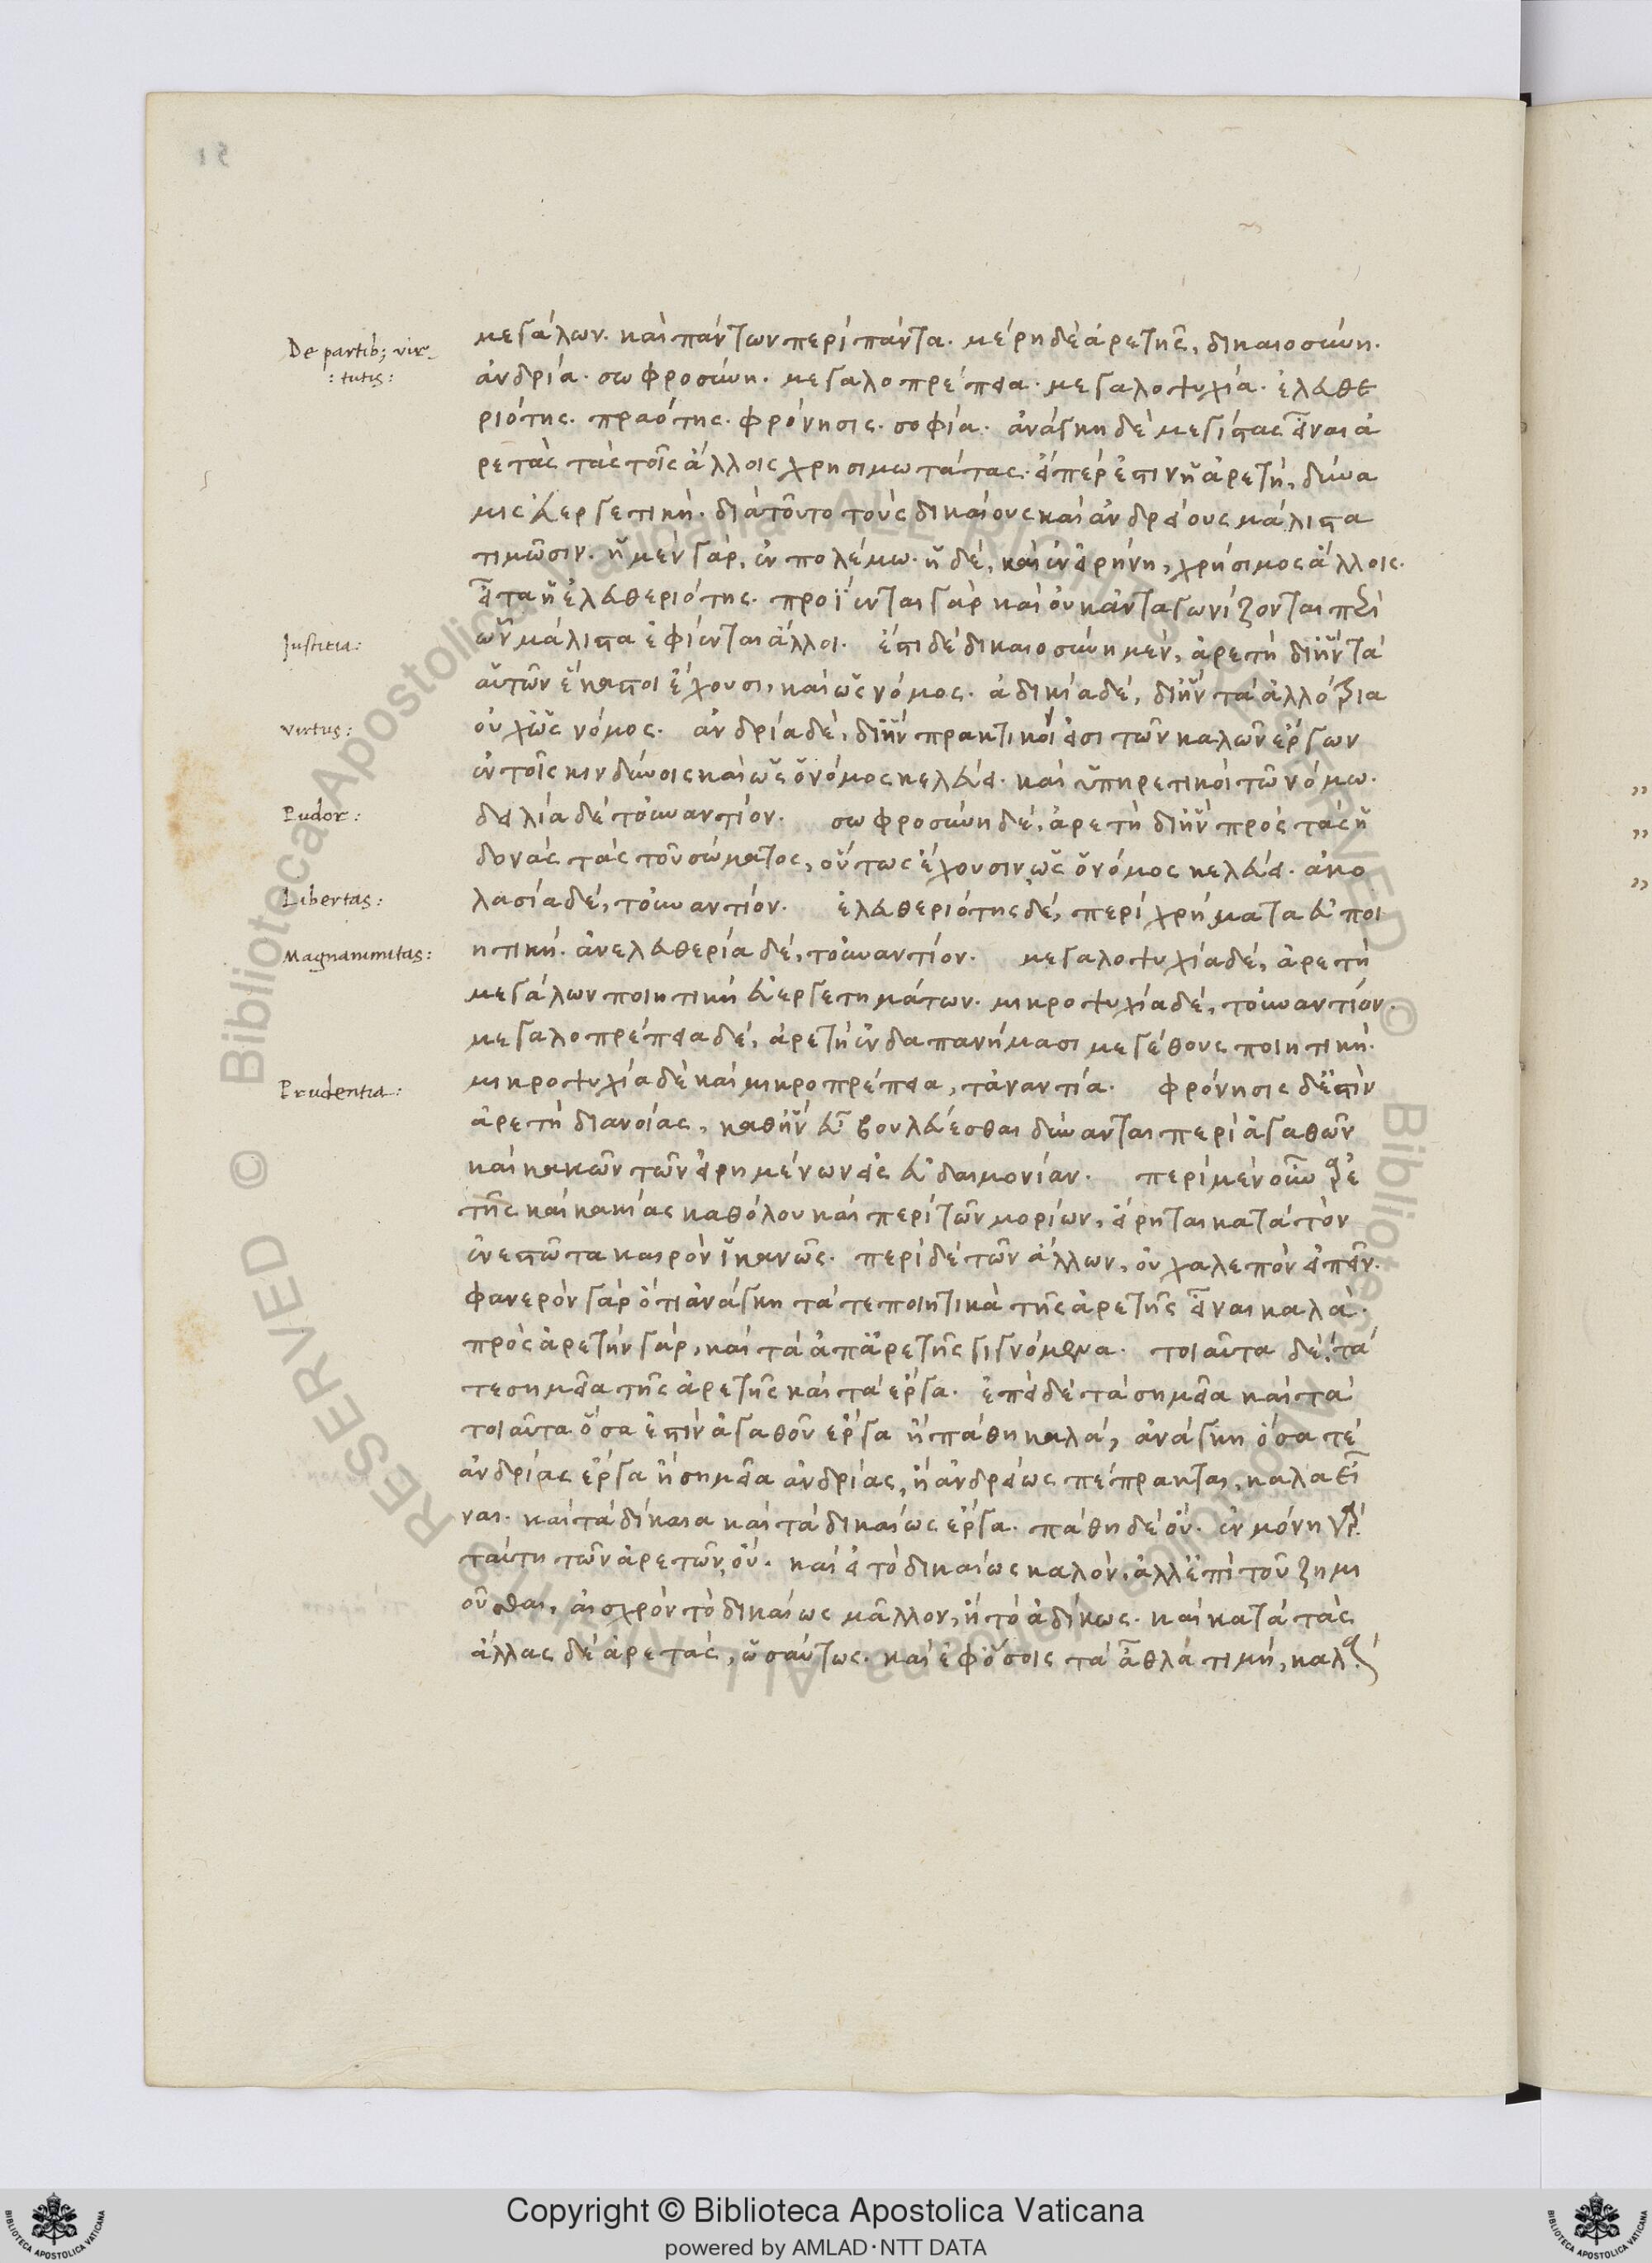 De partib; vir-
: tutis :
μεγάλων. καὶ πάντων περὶ πάντα. μέρη δὲ ἀρετῆς, δικαιοσύνη.
ἀνδρία. σωφροσύνη. μεγαλοπρέπεια. μεγαλοψυχία. ἐλευθε
ριότης. πραότης. φρόνησις. σοφία. ἀνάγκη δὲ μεγίστας εἶναι ἀ
ρετὰς τὰς τοῖς ἄλλοις χρησιμωτάτας. εἴπέρ ἐστιν ἡ ἀρετὴ, δύνα
μις εὐεργετική. διὰ τοῦτο τοὺς δικαίους καὶ ἀνδρείους μάλιστα
τιμῶσιν. ἡ μὲν γὰρ, ἐν πολέμω. ἡ δὲ, καὶ ἐν εἰρήνη, χρήσιμος ἄλλοις.
εἶτα ἡ ἐλευθεριότης. προΐενται γὰρ καὶ οὐκ ἀνταγωνίζονται περὶ
Justitia:
ὧν μάλιστα ἐφίενται ἄλλοι. ἔστι δὲ δικαιοσύνη μὲν, ἀρετὴ δι' ἣν τὰ
αὑτῶν ἕκαστοι ἔχουσι, καὶ ὡς νόμος. ἀδικία δέ, δι' ἣν τὰ ἀλλότρια
Virtus:
οὐχ ὡς νόμος. ἀνδρία δὲ, δι' ἣν πρακτικοί εἰσι τῶν καλῶν ἔργων
ἐν τοῖς κινδύνοις καὶ ὡς ὁ νόμος κελεύει. καὶ ὑπηρετικοὶ τῶ νόμω.
Pudor:
δειλία δὲ τοὐναντίον. σωφροσύνη δὲ, ἀρετὴ δι' ἣν πρὸς τὰς ἡ
δονὰς τὰς τοῦ σώματος, οὕτως ἔχουσιν ὡς ὁ νόμος κελεύει. ἀκο
Libertas:
λασία δέ, τοὐναντίον. ἐλευθεριότης δέ, περὶ χρήματα εὐποι
Magnanimitas:
ητική. ἀνελευθερία δέ, τοὐναντίον. μεγαλοψυχία δέ, ἀρετὴ
μεγάλων ποιητικὴ εὐεργετημάτων. μικροψυχία δέ, τοὐναντίον.
μεγαλοπρέπεια δέ, ἀρετὴ ἐν δαπανήμασι μεγέθους ποιητική.
Prudentia:
μικροψυχία δὲ καὶ μικροπρέπεια, τἀναντία. φρόνησις δ' ἐστὶν
ἀρετὴ διανοίας, καθ' ἣν εὖ βουλεύεσθαι δύνανται περὶ ἀγαθῶν
καὶ κακῶν τῶν εἰρημένων εἰς εὐδαιμονίαν. περὶ μὲν οὖν ἀρε
τῆς καὶ κακίας καθόλου καὶ περὶ τῶν μορίων, εἴρηται κατὰ τὸν
ἐνεστῶτα καιρὸν ἱκανῶς. περὶ δὲ τῶν ἄλλων, οὐ χαλεπὸν εἰπεῖν.
φανερὸν γὰρ ὅτι ἀνάγκη τά τε ποιητικὰ τῆς ἀρετῆς εἶναι καλά.
πρὸς ἀρετὴν γὰρ, καὶ τὰ ἀπ' ἀρετῆς γιγνόμενα. τοιαῦτα δὲ, τά
τε σημεῖα τῆς ἀρετῆς καὶ τὰ ἔργα. ἐπεὶ δὲ τὰ σημεῖα καὶ τὰ
τοιαῦτα ὅσα ἐστὶν ἀγαθοῦ ἔργα ἢ πάθη καλά, ἀνάγκη ὅσα τὲ
ἀνδρίας ἔργα ἢ σημεῖα ἀνδρίας, ἢ ἀνδρείως πέπρακται, καλὰ εἶ
ναι. καὶ τὰ δίκαια καὶ τὰ δικαίως ἔργα. πάθη δὲ οὔ. ἐν μόνη γὰρ
ταύτη τῶν ἀρετῶν, οὐ. καὶ εἰ τὸ δικαίως καλόν. ἀλλ' ἐπὶ τοῦ ζημι
οῦσθαι, αἰσχρὸν τὸ δικαίως μᾶλλον, ἢ τὸ ἀδίκως. καὶ κατὰ τὰς
ἄλλας δὲ ἀρετάς, ὡσαύτως. καὶ ἐφ' ὅσοις τὰ ἆθλα τιμή, καλά.